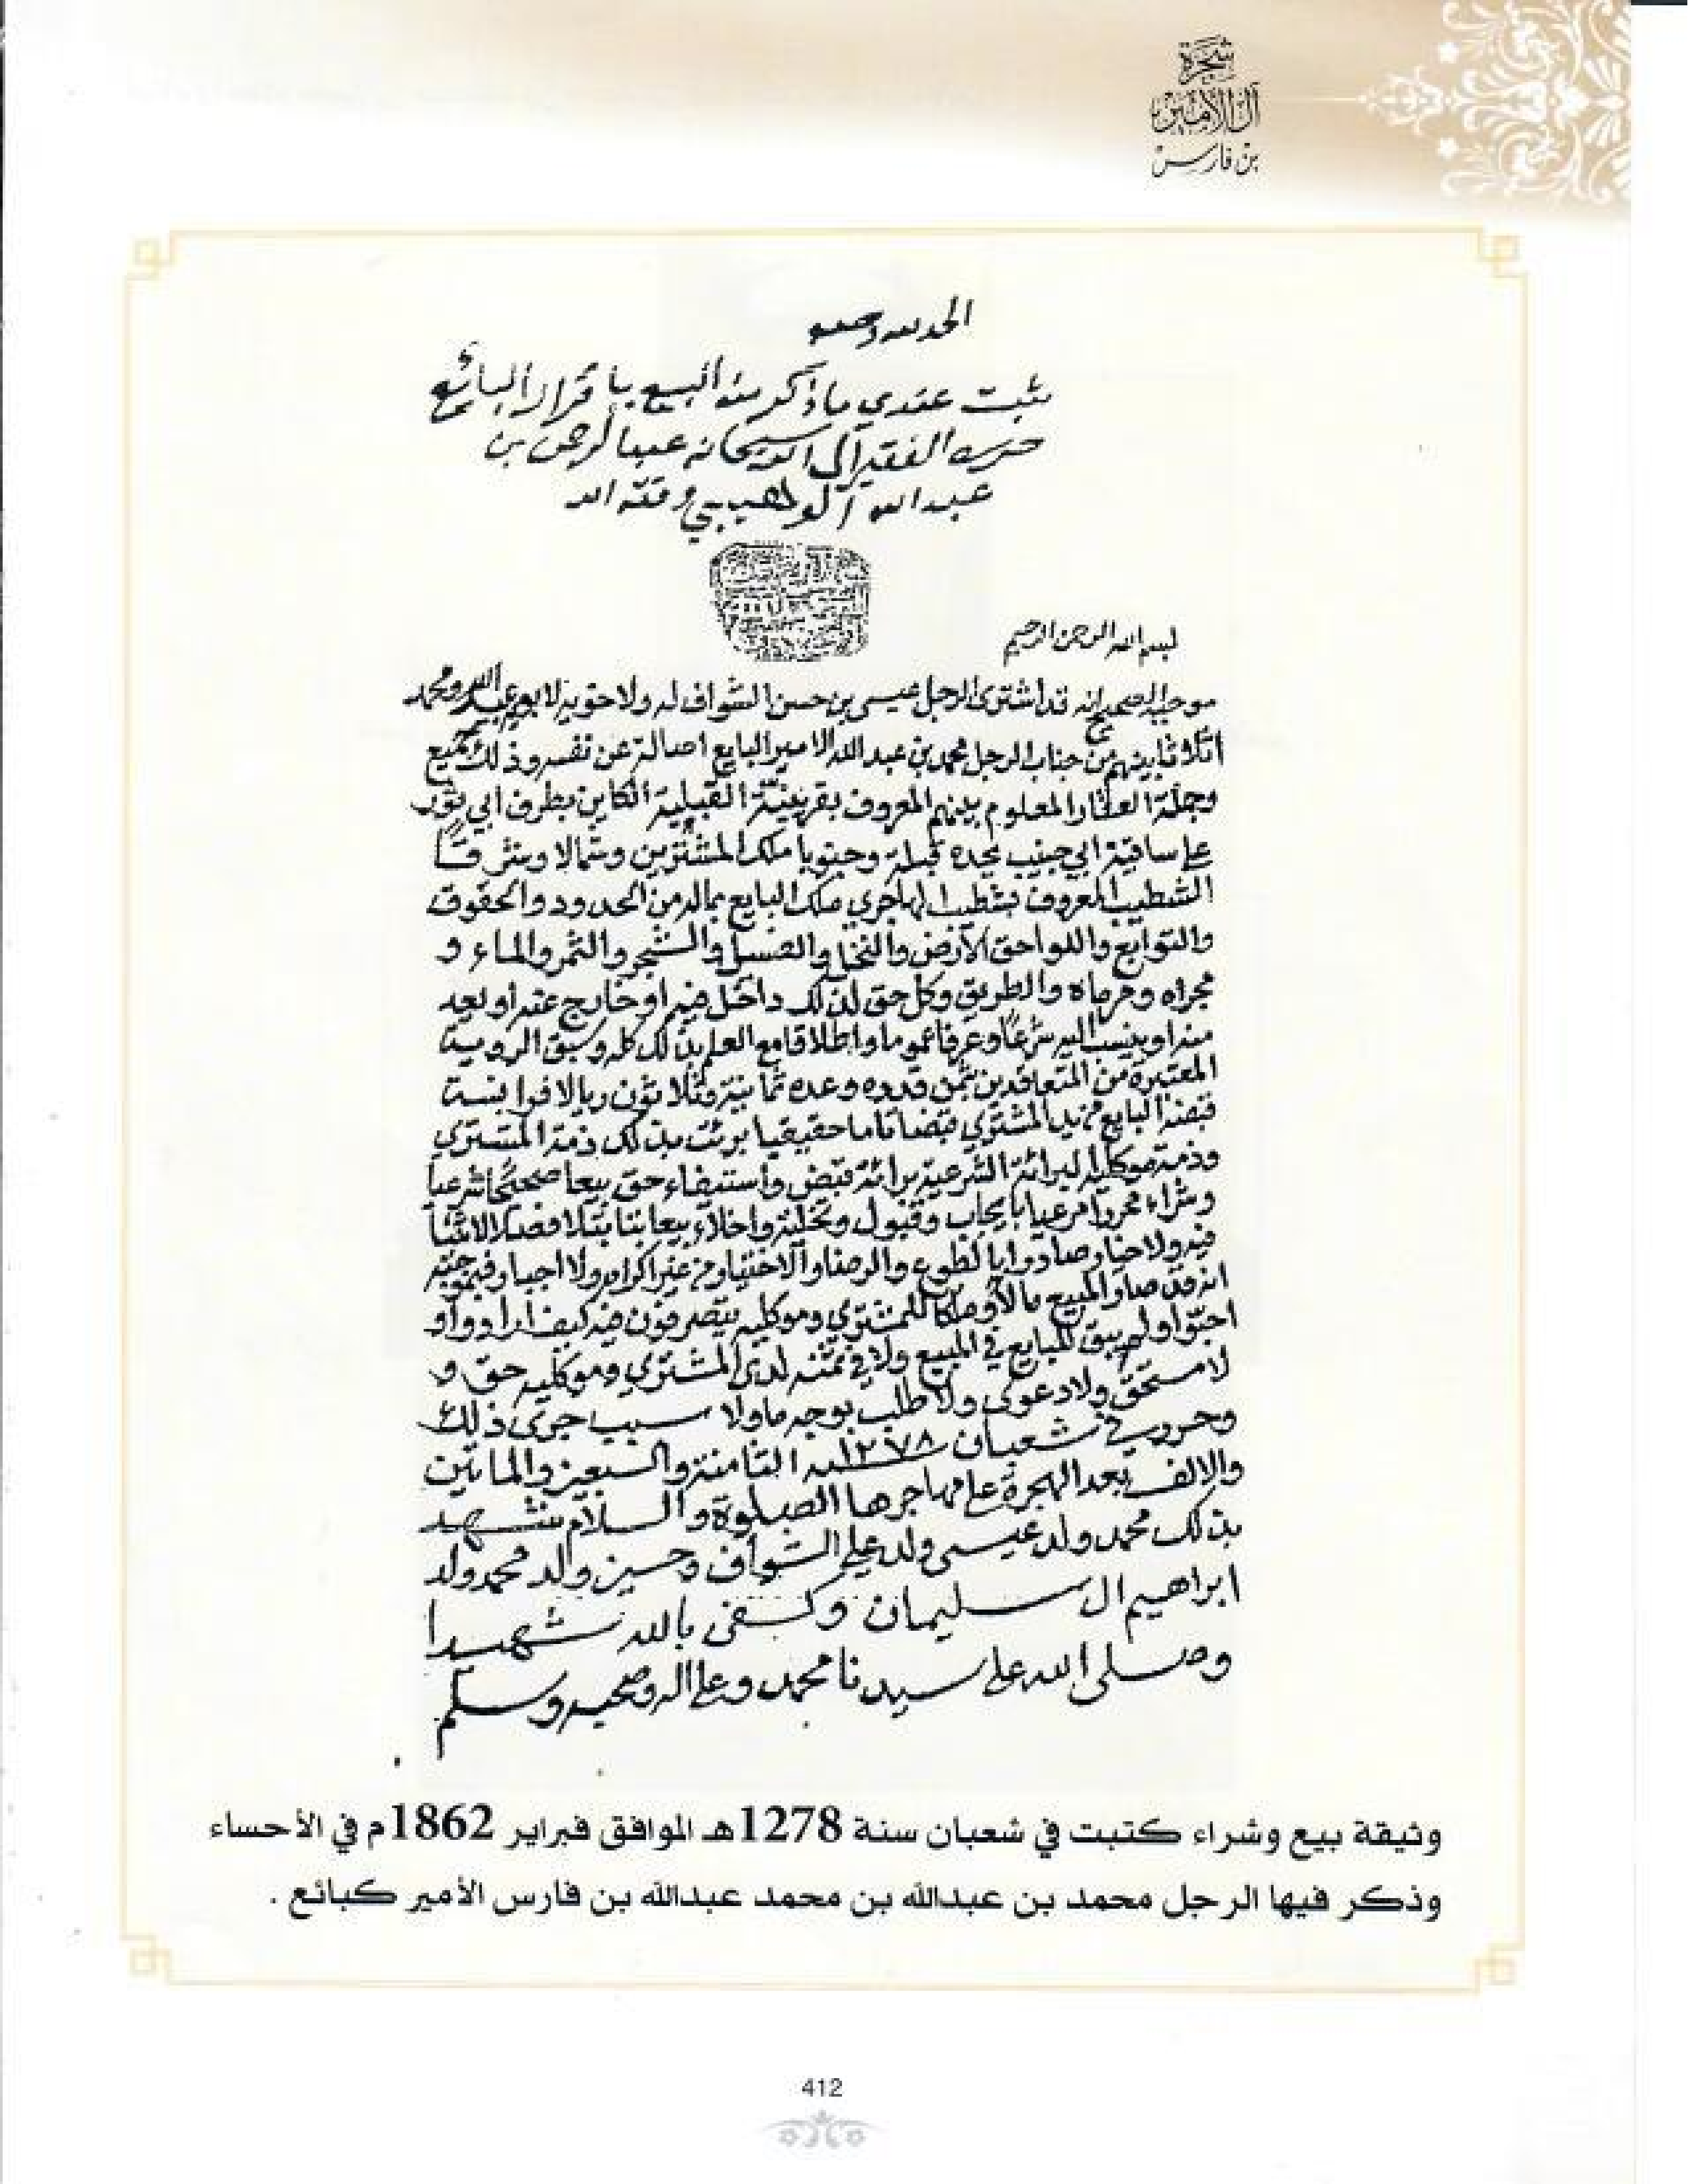 شجرة
آل الأمير
بن فارس
الحمد لله وحده
ثبت عندي ما ذكر من البيع باقرار البائع
حرره الفقير الى الله سبحانه عبد الرحمن بن
عبد الله الوهيبي وفقه الله
بسم الله الرحمن الرحيم
موجبه الصحيح انه قد اشترى الرجل عيسى بن حسن الشواف له ولاخويه عبد الله ومحمد
اثلاثا بينهم من جناب الرجل محمد بن عبد الله الامير البايع اصالة عن نفسه وذلك جميع
وجملة العقار المعلوم بينهم المعروف القبلية الكاين بطرف ابي ثور
على ساقية ابي جنيب يحده قبلة وجنوبا ملك المشترين وشمالا وشرقا
الشطيب المعروف بشطيب الهاجري ملك البايع بماله من الحدود والحقوق
والتوابع واللواحق الارض والنخل والفسيل والشجر والثمر والماء و
مجراه ومرماه والطريق وكل حق لذلك داخل فيه او خارج عنه او يعد
منه او ينسب اليه شرعا وعرفا عموما واطلاقا مع العلم بذلك كله وسبق الروية
المعتبرة من المتعاقدين بثمن قدره وعده ثمانية وثلاثون ريالا فرانسة
قبضه البايع من يد المشتري قبضا تاما حقيقيا برئت بذلك ذمة المشتري
وذمة موكليه البرائة الشرعية برائة قبض واستيفاء حق بيعا صحيحا شرعيا
وشراء محررا مرعيا بايجاب وقبول وتخلية واخلاء بيعا بتا بتلا فصلا لا ثنيا
فيه ولا خيار صادرا بالطوع والرضا والاختيار من غير اكراه ولا اجبار فبموجبه
انه قد صار المبيع مالا وملكا للمشتري وموكليه يتصرفون فيه كيف ارادوا و
احبوا ولم يبق للبايع في المبيع ولا في ثمنه لدى المشتري وموكليه حق و
لا مستحق ولا دعوى ولا طلب بوجه ما ولا سبب جرى ذلك
وحرر في شعبان ١٢٧٨ سنة الثامنة والسبعين والماتين
والالف بعد الهجرة على مهاجرها الصلوة والسلام شهد
بذلك محمد ولد عيسى ولد علي الشواف وحسين ولد محمد ولد
ابراهيم ال سليمان وكفى بالله شهيدا
وصلى الله على سيدنا محمد وعلى اله وصحبه وسلم
وثيقة بيع وشراء كتبت في شعبان سنة 1278هـ الموافق فبراير 1862م في الأحساء
وذكر فيها الرجل محمد بن عبدالله بن محمد عبدالله بن فارس الأمير كبائع .
412